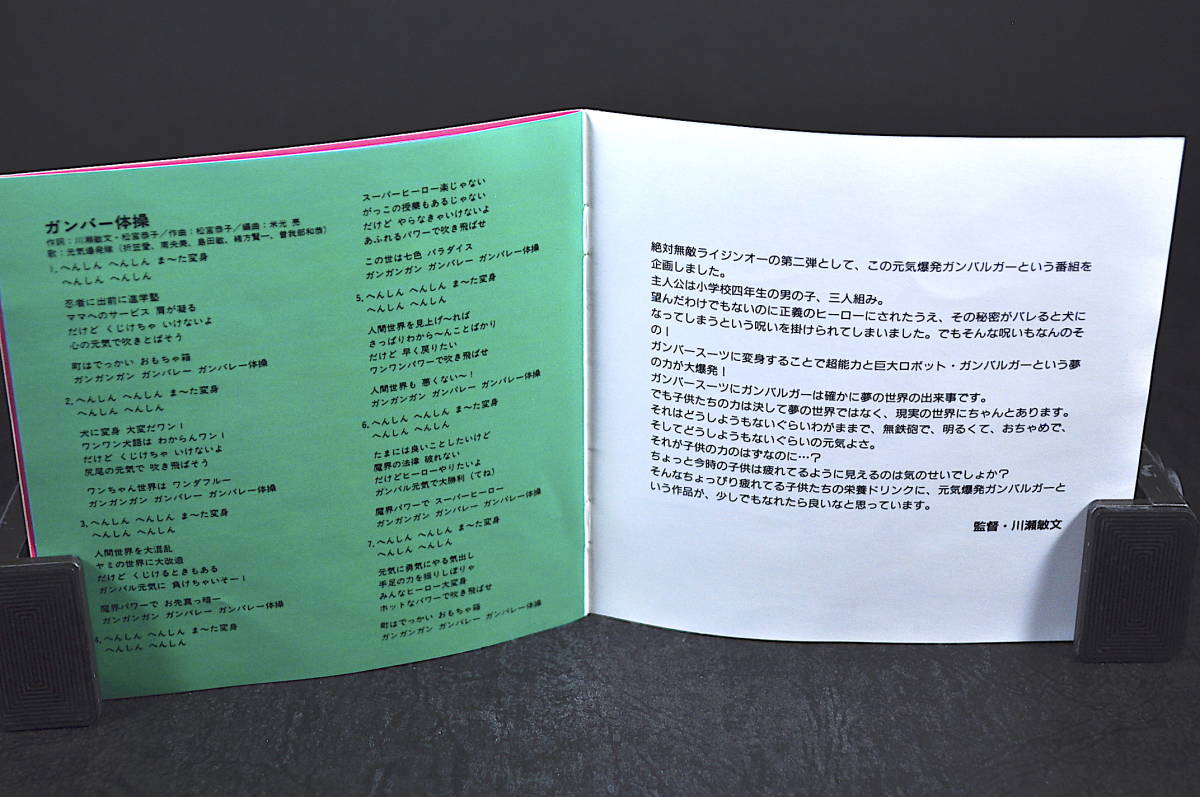 ガンバー体操
作詞：川瀬敏文・松宮恭子／作曲：松宮恭子／編曲：米光 亮
歌：元気爆発隊（折笠愛、南央美、島田敏、緒方賢一、曽我部和恭）
1.へんしん へんしん ま〜た変身
へんしん へんしん
忍者に出前に進学塾
ママへのサービス 肩が凝る
だけど くじけちゃ いけないよ
心の元気で吹きとばそう
町はでっかい おもちゃ箱
ガンガンガン ガンバレー ガンバレー体操
2.へんしん へんしん ま〜た変身
へんしん へんしん
犬に変身 大変だワン！
ワンワン犬語は わからんワン！
だけど くじけちゃ いけないよ
尻尾の元気で 吹き飛ばそう
ワンちゃん世界は ワンダフルー
ガンガンガン ガンバレー ガンバレー体操
3.へんしん へんしん ま〜た変身
へんしん へんしん
人間世界を大混乱
ヤミの世界に大改造
だけど くじけるときもある
ガンバル元気に 負けちゃいそー！
魔界パワーで お先真っ暗ー
ガンガンガン ガンバレー ガンバレー体操
4.へんしん へんしん ま〜た変身
へんしん へんしん
スーパーヒーロー楽じゃない
がっこの授業もあるじゃない
だけど やらなきゃいけないよ
あふれるパワーで吹き飛ばせ
この世は七色 パラダイス
ガンガンガン ガンバレー ガンバレー体操
5.へんしん へんしん ま〜た変身
へんしん へんしん
人間世界を見上げ〜れば
さっぱりわから〜んことばかり
だけど 早く戻りたい
ワンワンパワーで吹き飛ばせ
人間世界も 悪くない〜！
ガンガンガン ガンバレー ガンバレー体操
6.へんしん へんしん ま〜た変身
へんしん へんしん
たまには良いことしたいけど
魔界の法律 破れない
だけどヒーローやりたいよ
ガンバル元気で大勝利（てね）
魔界パワーで スーパーヒーロー
ガンガンガン ガンバレー ガンバレー体操
7.へんしん へんしん ま〜た変身
へんしん へんしん
元気に勇気にやる気出し
手足の力を振りしぼりゃ
みんなヒーロー大変身
ホットなパワーで吹き飛ばせ
町はでっかい おもちゃ箱
ガンガンガン ガンバレー ガンバレー体操
絶対無敵ライジンオーの第二弾として、この元気爆発ガンバルガーという番組を
企画しました。
主人公は小学校四年生の男の子、三人組み。
望んだわけでもないのに正義のヒーローにされたうえ、その秘密がバレると犬に
なってしまうという呪いを掛けられてしまいました。でもそんな呪いもなんのそ
の！
ガンバースーツに変身することで超能力と巨大ロボット・ガンバルガーという夢
の力が大爆発！
ガンバースーツにガンバルガーは確かに夢の世界の出来事です。
でも子供たちの力は決して夢の世界ではなく、現実の世界にちゃんとあります。
それはどうしようもないぐらいわがままで、無鉄砲で、明るくて、おちゃめで、
そしてどうしようもないぐらいの元気よさ。
それが子供の力のはずなのに…？
ちょっと今時の子供は疲れてるように見えるのは気のせいでしょか？
そんなちょっぴり疲れてる子供たちの栄養ドリンクに、元気爆発ガンバルガーと
いう作品が、少しでもなれたら良いなと思っています。
監督・川瀬敏文